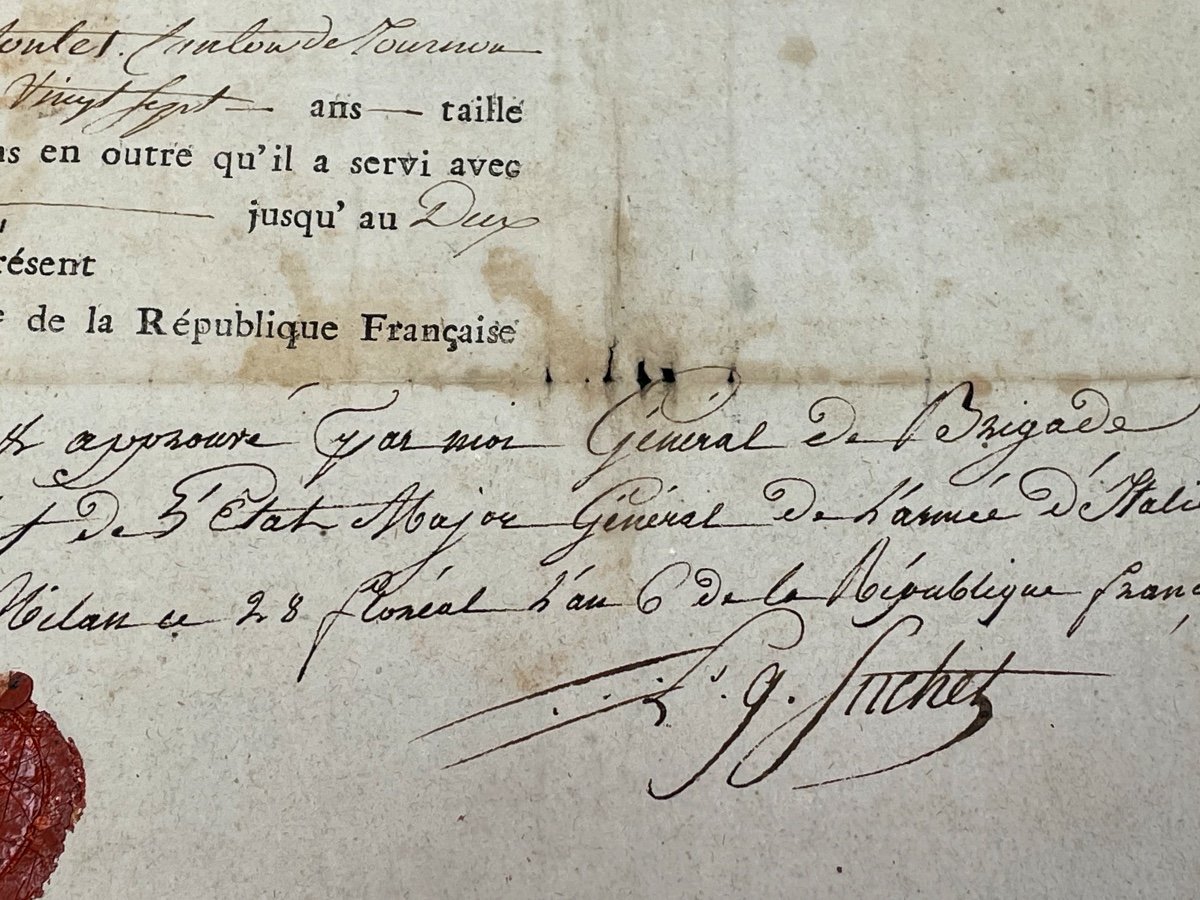 Canton de Tournon
Vingt Sept ans taille
ns en outre qu'il a servi avec
jusqu'au Dix
résent
e de la République Française
& approuvé par moi Général de Brigade
f de l'État Major Général de L'armée d'Itali
Milan ce 28 floréal L'an 6 de la République franç
L. g. Suchet